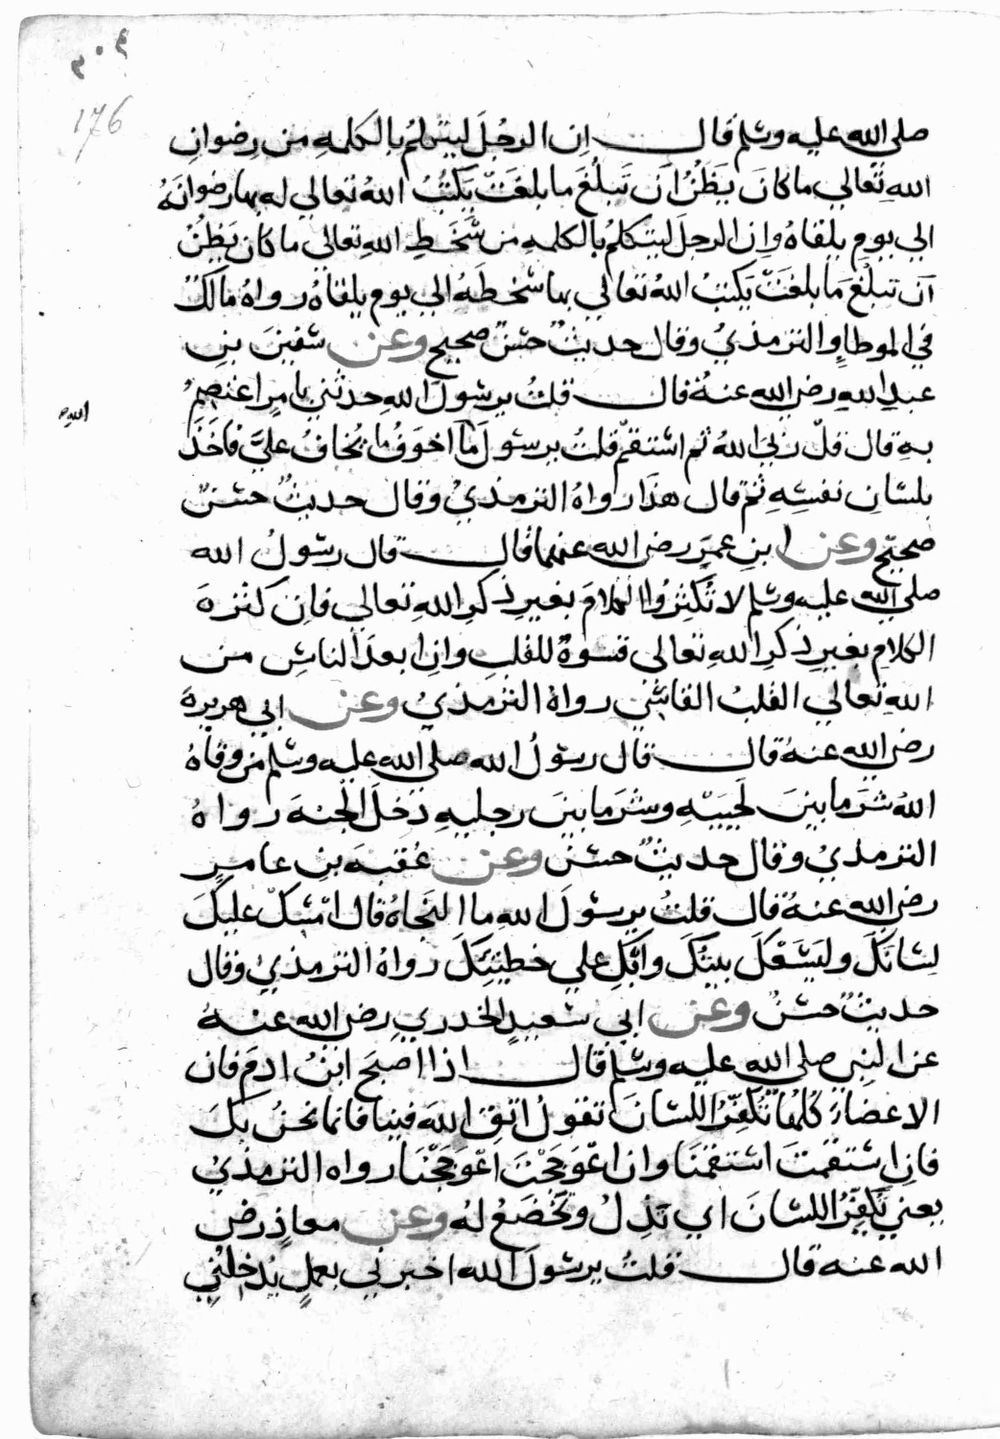 ٣٠٤
176
صلى الله عليه وسلم قال ان الرجل ليتكلم بالكلمةِ من رِضوانِ
اللهِ تعالي ما كانَ يَظُنُ ان تَبلُغَ ما بلغَتْ يَكتبُ اللهُ تعالي له بها رضوانَهُ
الي يومِ يلقاهُ وان الرجلَ ليتكلمُ بالكلمةِ من سَخَطِ اللهِ تعالى ما كان يَظنُ
ان تبلُغَ ما بلغَتْ يَكتبُ اللهُ تعالي بها سَخطَهُ الي يوم يلقاهُ رواهُ مالكٌ
في الموطاِ والترمذيُ وقال حديثٌ حسنٌ صحيح وعن سفينَ بنِ
عبدِ اللهِ رضي الله عنهُ قال قلتُ يرسُولَ اللهِ حدثني بامرٍ اعتصِمُ
الله
بهِ قال قلْ ربيَ اللهُ ثم استقمْ قلتُ يرسُولَ ما اخوَفُ ما يُخافُ عليَّ فاخَذَ
بلسَانِ نفسِهِ ثم قال هذا رواهُ الترمذيُ وقال حديثٌ حسَنٌ
صحيحٌ وعن ابنِ عمرَ رضي الله عنهما قال قال رسُولُ الله
صلى الله عليه وسلم لا تُكثِرُوا الكلامَ بغيرِ ذكرِ اللهِ تعالي فانِ كثرةَ
الكلامِ بغيرِ ذكرِ اللهِ تعالى قسوةٌ للقلبِ وانِ ابعدَ الناسِ من
اللهِ تعالي القلبُ القاسي رواهُ الترمذيُ وعن ابي هريرةَ
رضي الله عنهُ قال قال رسُولُ الله صلى الله عليه وسلم من وقاهُ
اللهُ شرَ ما بينَ لَحيَيْهِ وشرَ ما بينَ رجليهِ دخلَ الجنةَ رواهُ
الترمذيُ وقال حديثٌ حسنٌ وعن عُقبةَ بنِ عامرٍ
رضي الله عنهُ قال قلتُ يرسُولَ اللهِ ما النجاةُ قال امْسِكْ عليكَ
لسَانَكَ وليَسَعْكَ بيتُكَ وابْكِ علي خطيئتِكَ رواهُ الترمذيُ وقال
حديثٌ حسنٌ وعن ابي سَعيدٍ الخدريِ رضي الله عنهُ
عن النبيِ صلى الله عليه وسلم قال اذا اصبحَ ابنُ ادمَ فان
الاعضاءَ كُلها تُكفِّرُ اللسَانَ تقولُ اتقِ اللهَ فينا فانما نحنُ بكَ
فانِ استقمتَ استقمنَا وان اعْوَجَجْتَ اعْوَجَجْنَا رواه الترمذيُ
يعني تُكفِّرُ اللسَانَ اي تَذِلُ وتَخْضَعُ لهُ وعن معاذٍ رضي
الله عنه قال قلتُ يرسُولَ الله اخبرني بعملٍ يُدخِلُني